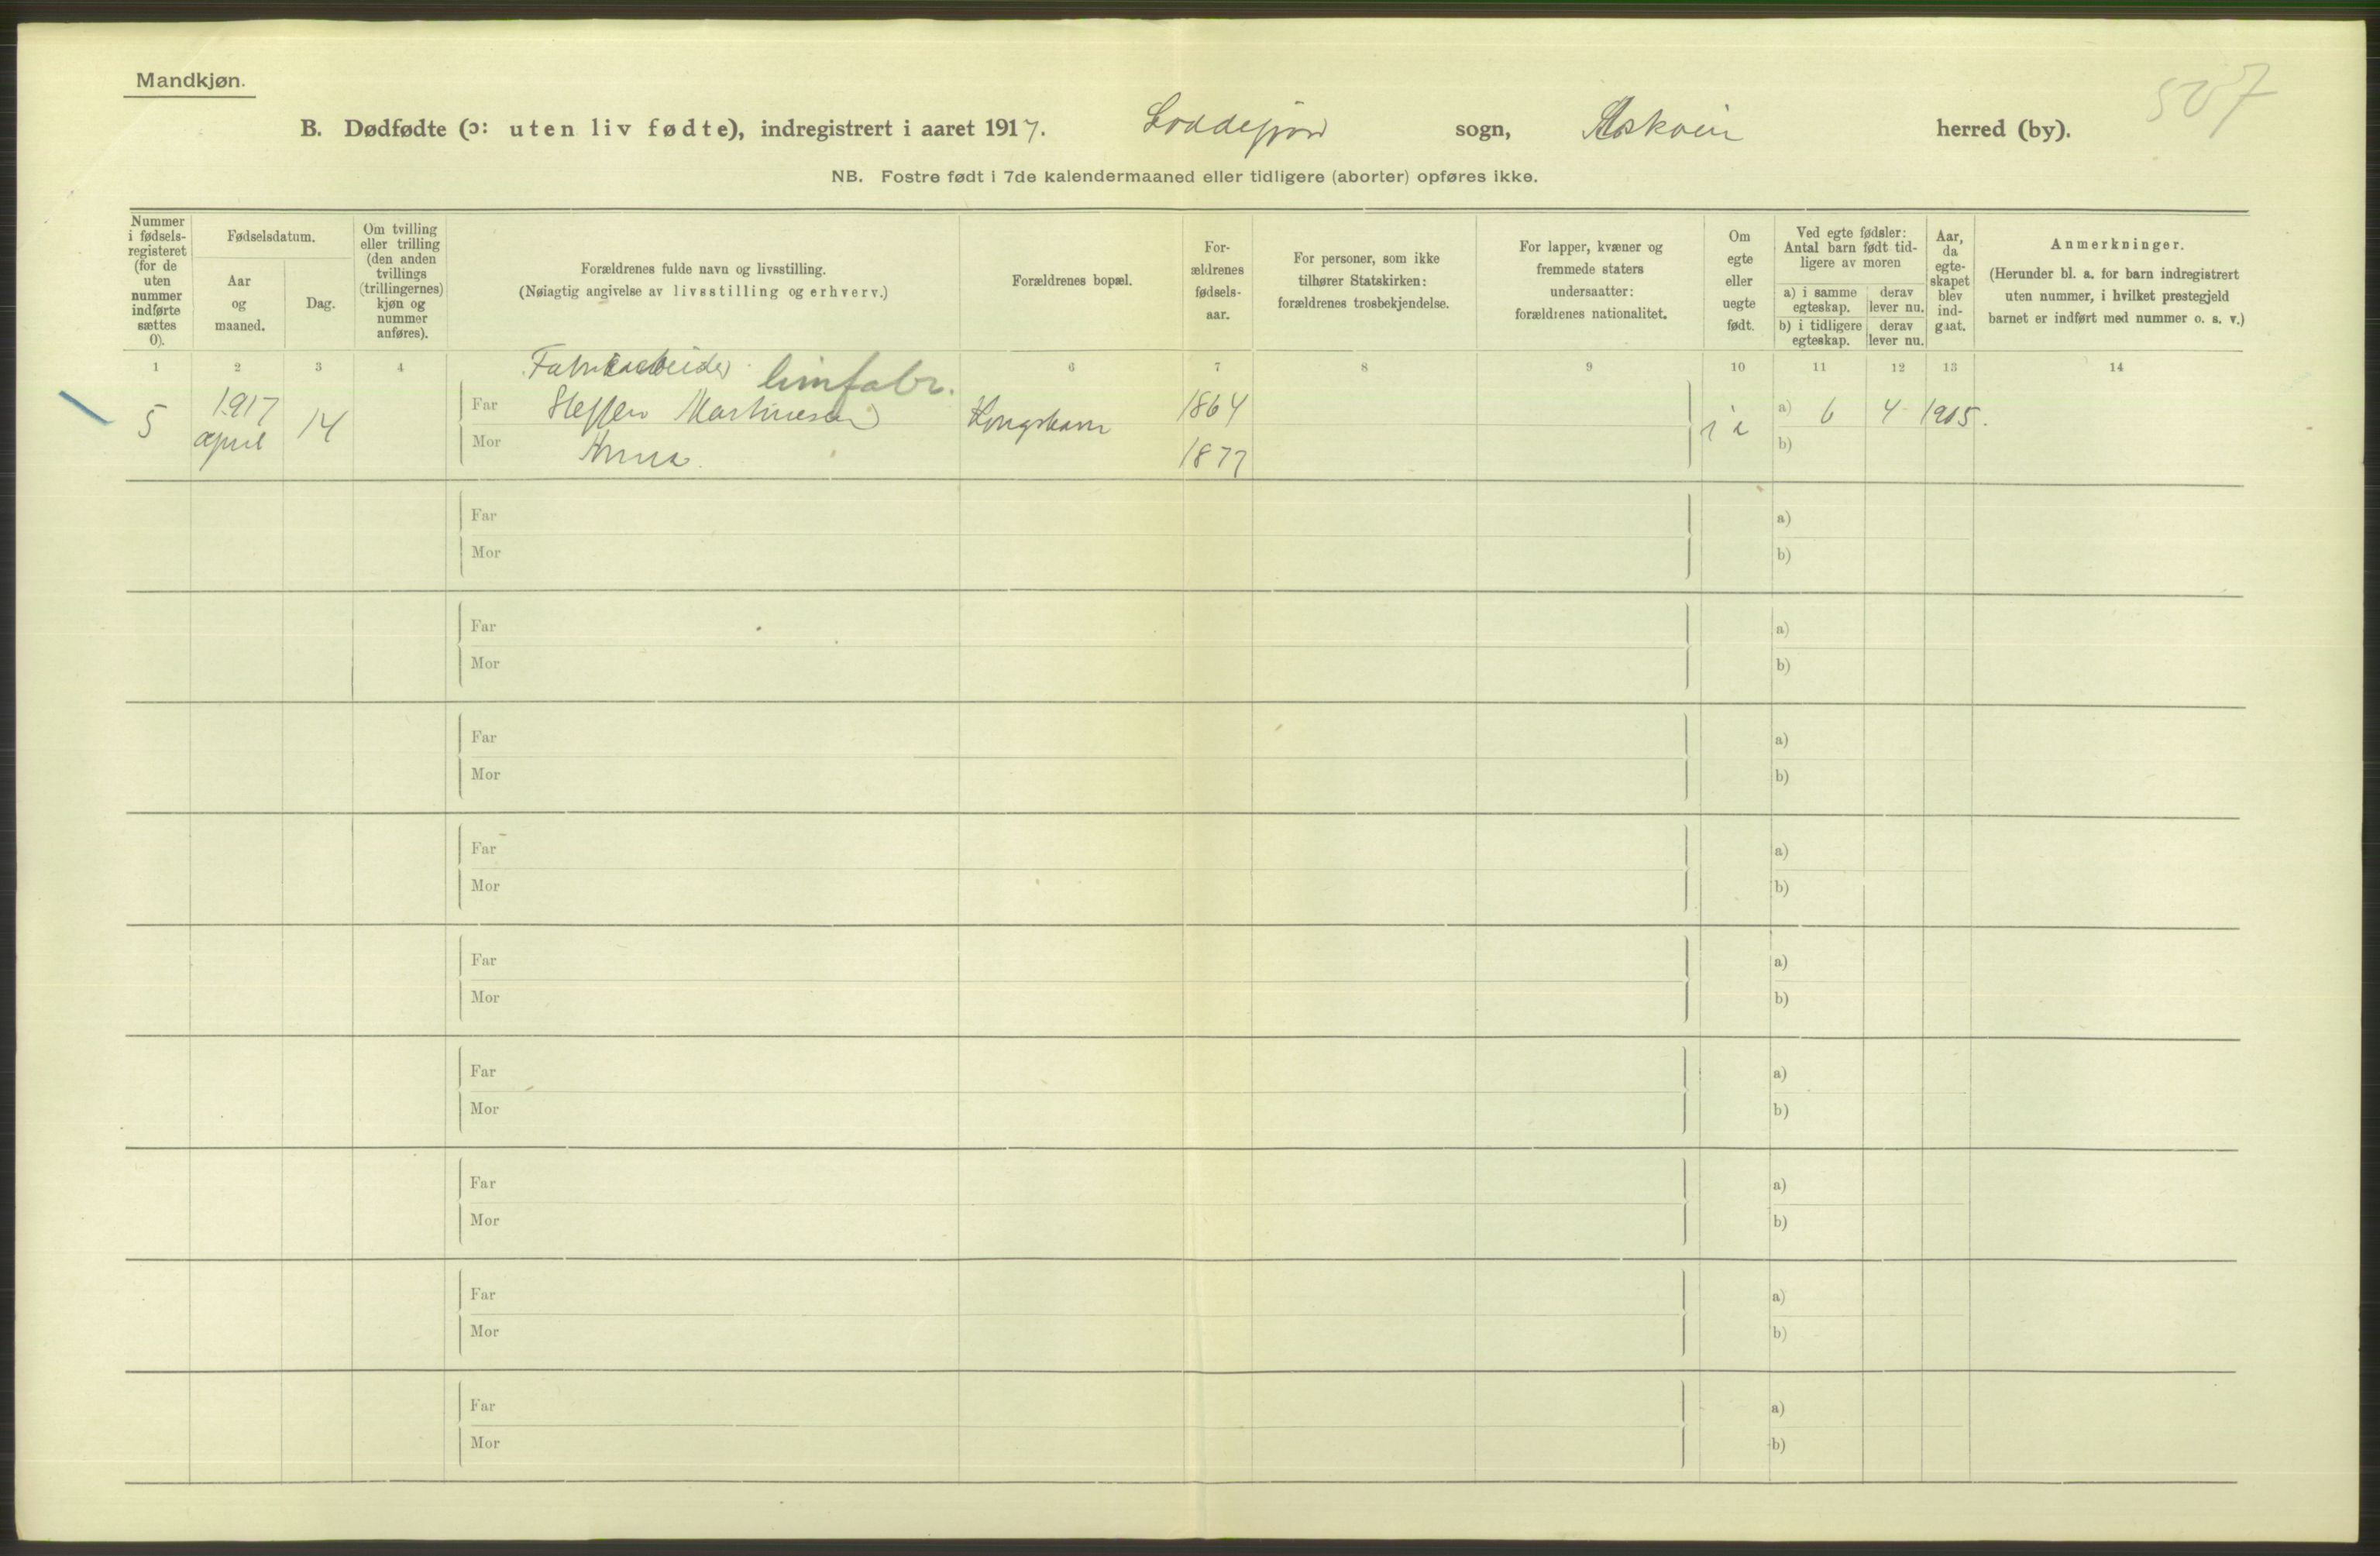 Mandkjøn.
507
B. Dødfødte (ɔ: uten liv fødte), indregistrert i aaret 1917. Loddefjord sogn, Askøen herred (by).
NB. Fostre født i 7de kalendermaaned eller tidligere (aborter) opføres ikke.
Nummer i fødsels-registeret (for de uten nummer indførte sættes 0).
Fødselsdatum.
Aar og maaned.
Dag.
Om tvilling eller trilling (den anden tvillings (trillingernes) kjøn og nummer anføres).
Forældrenes fulde navn og livsstilling.
(Nøiagtig angivelse av livsstilling og erhverv.)
Forældrenes bopæl.
For-ældrenes fødsels-aar.
For personer, som ikke tilhører Statskirken: forældrenes trosbekjendelse.
For lapper, kvæner og fremmede staters undersaatter: forældrenes nationalitet.
Om egte eller uegte født.
Ved egte fødsler: Antal barn født tid-ligere av moren
a) i samme egteskap.
derav lever nu.
b) i tidligere egteskap.
derav lever nu.
Aar, da egte-skapet blev ind-gaat.
Anmerkninger.
(Herunder bl. a. for barn indregistrert uten nummer, i hvilket prestegjeld barnet er indført med nummer o. s. v.)
1 2 3 4 6 7 8 9 10 11 12 13 14
Fabrikarbeider limfabr.
5 1917 april 14
Far Steffen Martinesen Kongshavn 1864 i e a) 6 4 1905.
Mor Anna. 1877 b)
Far a)
Mor b)
Far a)
Mor b)
Far a)
Mor b)
Far a)
Mor b)
Far a)
Mor b)
Far a)
Mor b)
Far a)
Mor b)
Far a)
Mor b)
Far a)
Mor b)